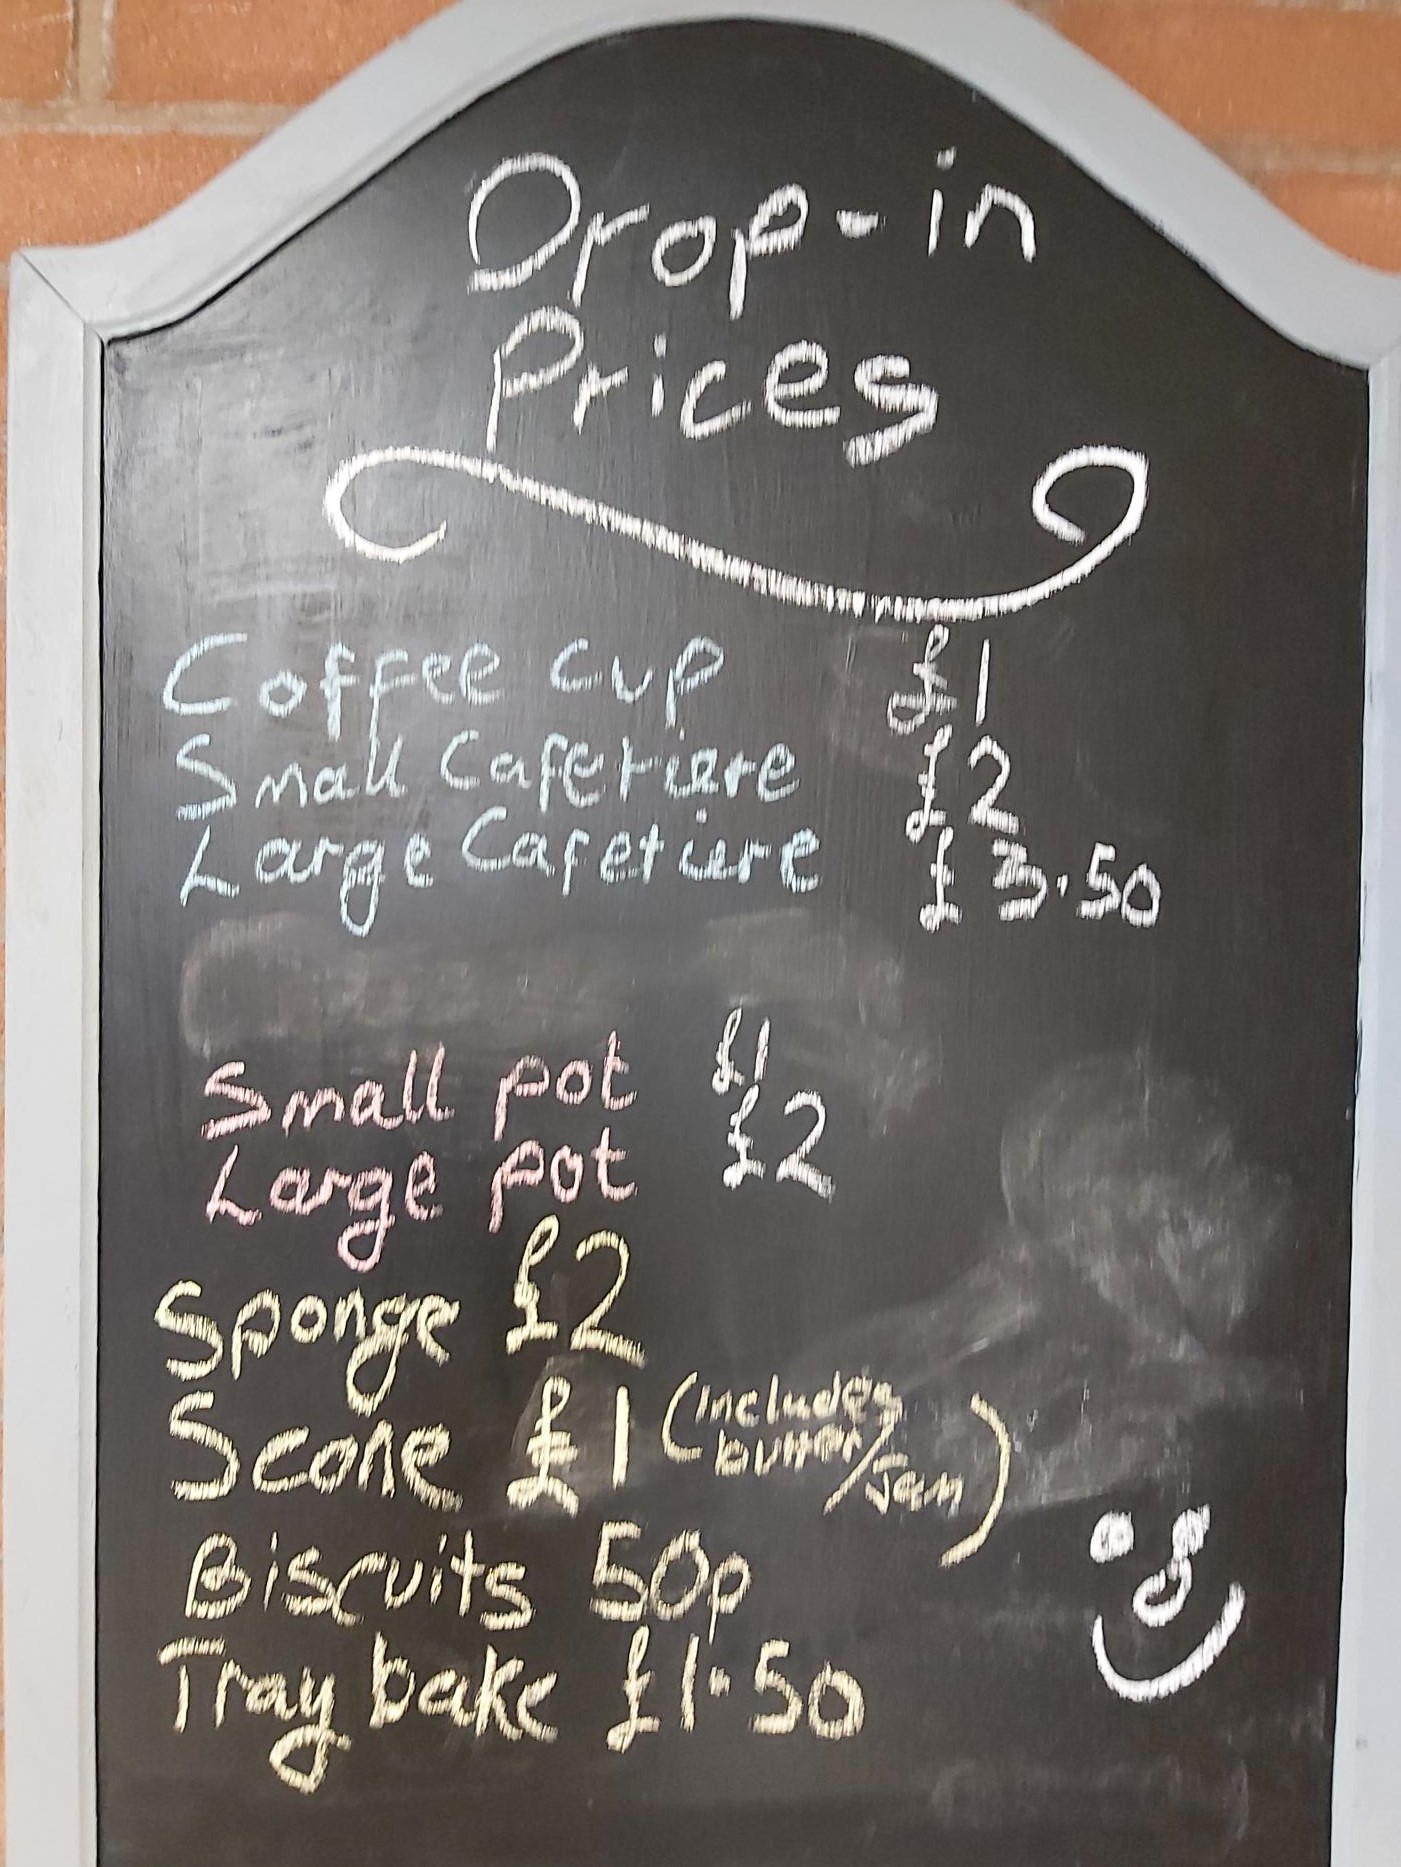 Drop-in
Prices
Coffee cup £1
Small Cafetiere £2
Large Cafetiere £3.50
Small pot £1
Large pot £2
Sponge £2
Scone £1 (includes
butter/jam)
Biscuits 50p
Tray bake £1.50